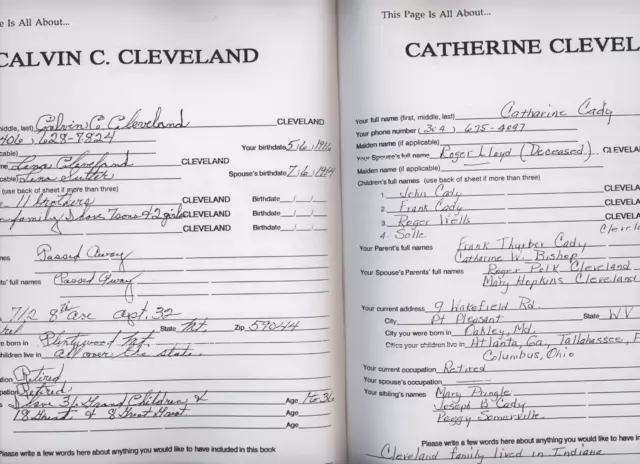 e Is All About...
CALVIN C. CLEVELAND
middle, last) Calvin C. Cleveland CLEVELAND
406) 628-7824 Your birthdate 5/6/1916
cable)
me Lena Cleveland CLEVELAND Spouse's birthdate 7/6/1914
cable) Lena
(use back of sheet if more than three)
11 brothers CLEVELAND Birthdate / /
family I have 7 sons & 2 girls CLEVELAND Birthdate / /
CLEVELAND Birthdate / /
mes Passed Away
ts' full names Passed Away
712 8th ave apt. 32
State Mt. Zip 59044
re born in Plentywood Mt.
children live in all over the state
ation Retired
pation Retired
I have 36 Grand Children & Age 1 to 36
18 Great & 8 Great Great Age
Age
Please write a few words here about anything you would like to have included in this book
This Page Is All About...
CATHERINE CLEVEL
Your full name (first, middle, last) Catharine Cady
Your phone number (304) 675-4897
Maiden name (if applicable)
Your Spouse's full name Roger Lloyd (Deceased) CLEVELA
Maiden name (if applicable)
Children's full names (use back of sheet if more than three)
1. John Cady CLEVELA
2. Frank Cady CLEVELA
3. Roger Wells CLEVELA
4. Solle Clevela
Your Parent's full names Frank Thurber Cady
Catharine W. Bishop
Your Spouse's Parents' full names Roger Polk Cleveland
Mary Hopkins Cleveland
Your current address 9 Wakefield Rd.
City Pt Pleasant State WV
City you were born in Oakley, Md.
Cities your children live in Atlanta, Ga., Tallahassee, F
Columbus, Ohio
Your current occupation Retired
Your spouse's occupation
Your sibling's names Mary Pringle
Joseph B Cady
Peggy Somerville
Please write a few words here about anything you would like to
Cleveland family lived in Indiana